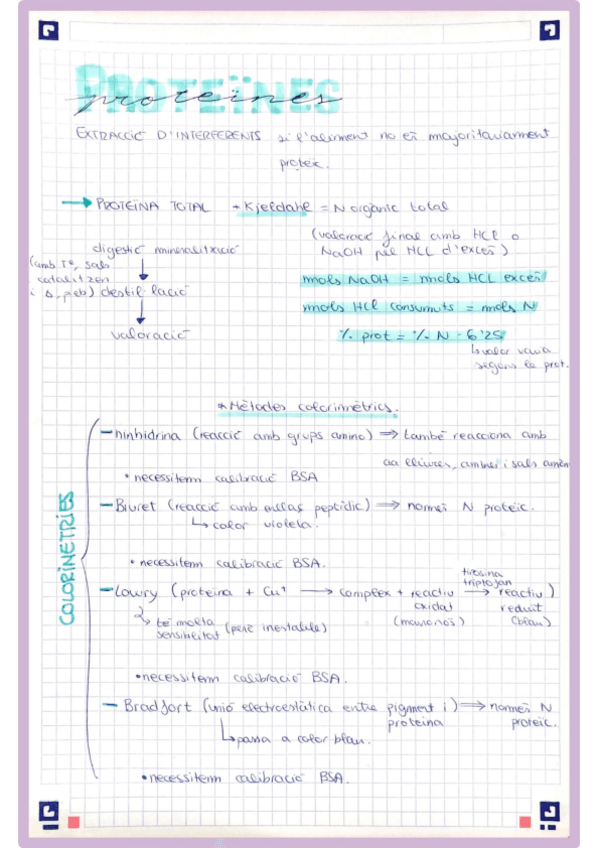 PROTEÏNES
proteïnes
EXTRACCIÓ D'INTERFERENTS si l'aliment no és majoritàriament
proteic.
→ PROTEÏNA TOTAL → Kjeldahl = N orgànic total
(valoració final amb HCl o
NaOH pel HCl d'excés)
digestió mineralització
(amb Tª, sals
catalitzen
i ↓ p.eb) destil·lació
valoració
mols NaOH = mols HCl excés
mols HCl consumits = mols N
% prot = % N · 6'25
↳ valor varia
segons la prot.
* Mètodes colorimètrics.
COLORIMETRIES
— ninhidrina (reacció amb grups amino) ⇒ també reacciona amb
aa lliures, amines i sals amòn
• necessitem calibració BSA
— Biuret (reacció amb enllaç peptídic) ⇒ només N proteic.
↳ color violeta.
• necessitem calibració BSA.
— Lowry (proteïna + Cu⁺ → complex + reactiu oxidat (marronós) → tirosina triptofan reactiu reduït (blau))
↳ té molta sensibilitat (però inestable)
• necessitem calibració BSA.
— Bradfort (unió electroestàtica entre pigment i proteïna) ⇒ només N proteic.
↳ passa a color blau.
• necessitem calibració BSA.